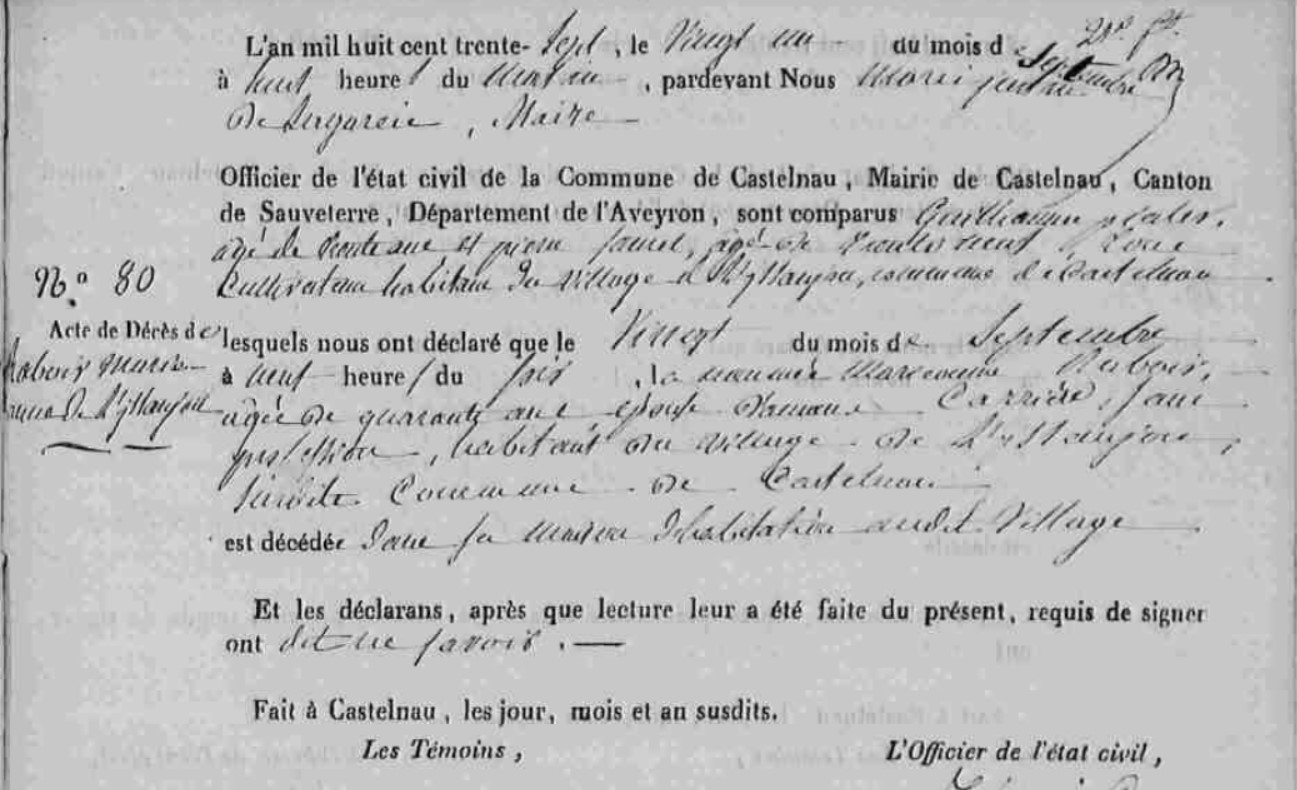 L'an mil huit cent trente- sept, le Vingt un du mois de Septembre
à huit heures du Matin, pardevant Nous
Maire
Officier de l'état civil de la Commune de Castelnau, Mairie de Castelnau, Canton
de Sauveterre, Département de l'Aveyron, sont comparus Guilhaume
agé de trente ans et pierre agé de trente neuf,
Cultivateurs habitans du village commune de Castelnau
N.o 80
Acte de Décès de
lesquels nous ont déclaré que le Vingt du mois de Septembre
à neuf heures du soir, la nommée Rubois,
agée de quarante ans épouse Carrière, sans
profession, habitant du village de
susdite Commune de Castelnau
est décédée dans sa maison d'habitation audit Village
Et les déclarans, après que lecture leur a été faite du présent, requis de signer
ont dit ne savoir.
Fait à Castelnau, les jour, mois et an susdits.
Les Témoins, L'Officier de l'état civil,